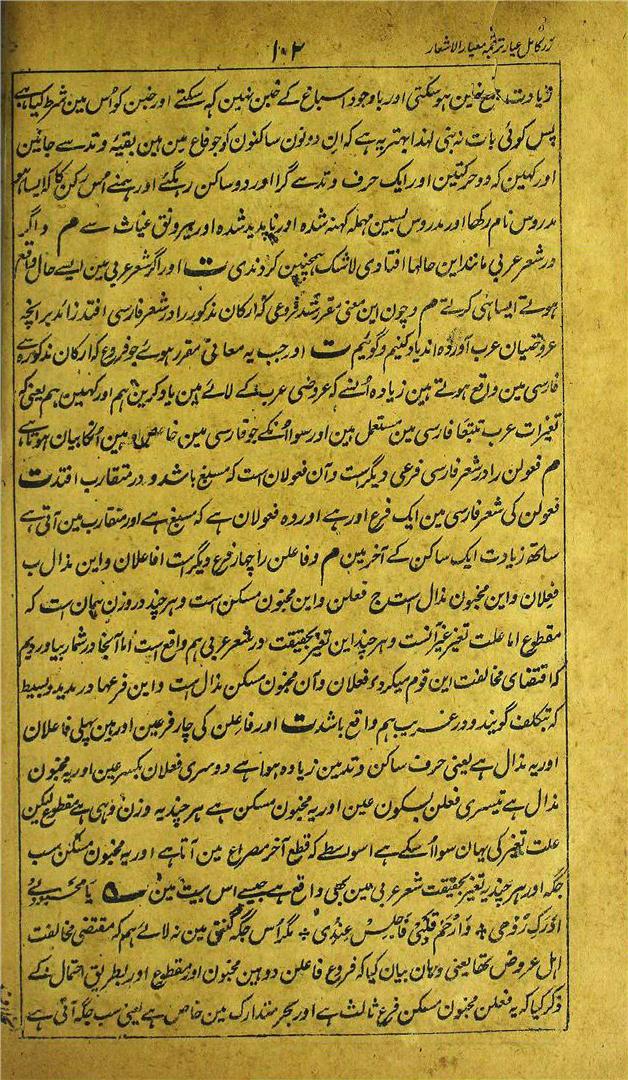 زر کامل عیار ترجمہ معیار الاشعار
۱۰۲
زیادت جمع نہین ہو سکتی اور باوجود اسباغ کے خبن نہین کہہ سکتے اور خبن کو اس مین شرط کیا ہے
پس کوئی بات نہ بنی لہذا بہتر یہ ہے کہ ان دونون ساکنون کو جو فاع مین ہین بقیۂ وتد سے جانین
اور کہین کہ دو حرکتین اور ایک حرف وتد سے گرا اور دو ساکن رہگئے اور ہمنے اس رکن کا کہ ایسا ہو
مدروس نام رکھا اور مدروس بسین مہملہ کہنہ شدہ اور ناپدید شدہ اور بیرونق غیاث سے م و اگر
در شعر عربی مانند این حالہا افتادی لاشک ہمچنین کردندی ت اور اگر شعر عربی مین ایسے حال واقع
ہوتے ایسا ہی کرتے م و چون این معنی مقرر شد فروعی کہ ارکان مذکور را در شعر فارسی افتد زائد بر انچہ
عروضیان عرب آوردہ اند یاد کنیم و گوئیم ت اور جب یہ معانی مقرر ہوئے جو فروع کہ ارکان مذکورہ سے
فارسی مین واقع ہوتے ہین زیادہ اُنسے کہ عروضی عرب کے لائے ہین یاد کرین ہم اور کہین ہم یعنی کہ
تغیرات عرب تبتعا فارسی مین مستعمل ہین اور سوا اُنکے جو فارسی مین خاص ہین اُنکا بیان ہوتا ہے
م فعولن را در شعر فارسی فرعی دیگرست و آن فعولان است کہ مسبغ باشد و در متقارب افتد ت
فعولن کی شعر فارسی مین ایک فرع اور ہے اور وہ فعولان ہے کہ مسبغ ہے اور متقارب مین آتی ہے
ساتھ زیادت ایک ساکن کے آخر مین م و فاعلن را چہار فرع دیگرست ا فاعلان و این مذال ب
فعِلان و این مخبون مذال است ج فعلن و این مخبون مسکن است و ہر چند در وزن ہمان ست کہ
مقطوع اما علت تغیر غیر آنست و ہر چند این تغیر بحقیقت در شعر عربی ہم واقع است اما آنجا در شمار نیاوردیم
کہ اقتضای مخالفت این قوم میکرد ء فعلان و آن مخبون مسکن مذال ست و این فرعہا در مدید و بسیط
کہ بتکلف گویند و در غریب ہم واقع باشد ت اور فاعلن کی چار فرعین اور ہین پہلی فاعلان
اور یہ مذال ہے یعنی حرف ساکن وتد مین زیادہ ہوا ہے دوسری فعلان بکسر عین اور یہ مخبون
مذال ہے تیسری فعلن بسکون عین اور یہ مخبون مسکن ہے ہر چند یہ وزن وہی ہے مقطوع لیکن
علت تغیر کی یہان سوا اُسکے ہے اسواسطے کہ قطع آخر مصراع مین آتا ہے اور یہ مخبون مسکن سب
جگہ اور ہر چند یہ تغیر بحقیقت شعر عربی مین بھی واقع ہے جیسے اس بیت مین
اَدْرِکْ رُوْحِیْ وَارْحَمْ قَلْبِیْ فَاجْلِسْ عِنْدِیْ مگر اُس جگہ گنتی مین نہ لائے ہم کہ مقتضی مخالفت
اہل عروض تھا یعنی وہان بیان کیا کہ فروع فاعلن دو ہین مخبون اور مقطوع اور بطریق احتمال کے
ذکر کیا کہ یہ فعلن مخبون مسکن فرع ثالث ہے اور بحر متدارک مین خاص ہے یعنی سب جگہ آتی ہے